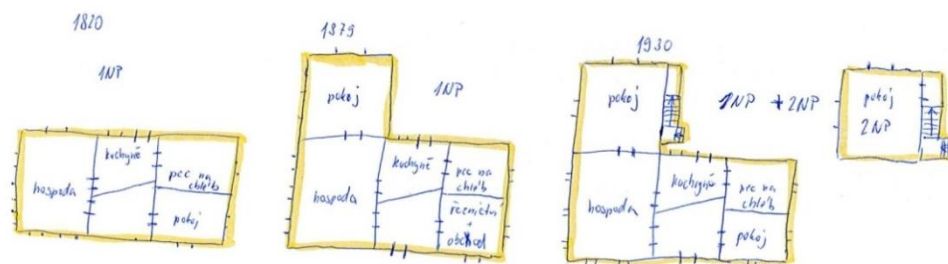 1820
1NP
hospoda
kuchyně
pec na
chléb
pokoj
1879
1NP
pokoj
hospoda
kuchyně
pec na
chléb
řeznictví
+
obchod
1930
1NP + 2NP
pokoj
hospoda
kuchyně
pec na
chléb
pokoj
pokoj
2NP